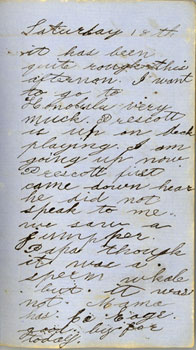 Saturday 18th
it has been
quite rough this
afternoon. I want
to go to
Honolulu very
much. Prescott
is up on
playing. I am
going up now
Prescott just
came down hear
he did not
speak to me.
we saw a
jumpper.
Papa though
it was a
sperm whale
but it was
not Mama
has
big for
today.